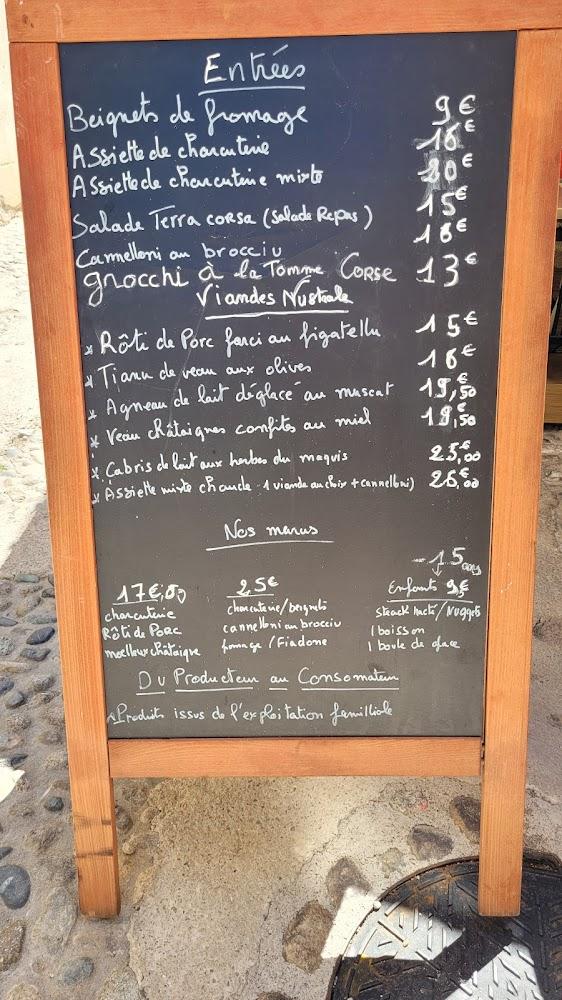 Entrées
Beignets de fromage 9€
Assiette de charcuterie 16€
Assiette de charcuterie mixte 20€
Salade Terra corsa (Salade Repas) 15€
Cannelloni au brocciu 16€
gnocchi à la Tomme Corse 13€
Viandes Nustrale
* Rôti de Porc farci au figatellu 15€
* Tianu de veau aux olives 16€
* Agneau de lait déglacé au muscat 19,50€
* Veau châtaignes confites au miel 19,50€
* Cabris de lait aux herbes du maquis 25,00€
* Assiette mixte chaude - 1 viande au choix + cannelloni) 26,00€
Nos menus
17€,50
charcuterie
Rôti de Porc
moelleux châtaigne
25€
charcuterie/beignets
cannelloni au brocciu
fromage / Fiadone
-15 ans
Enfants 9€
Steack haché/Nuggets
1 boisson
1 boule de glace
Du Producteur au Consomateur
*Produits issus de l'exploitation familliale